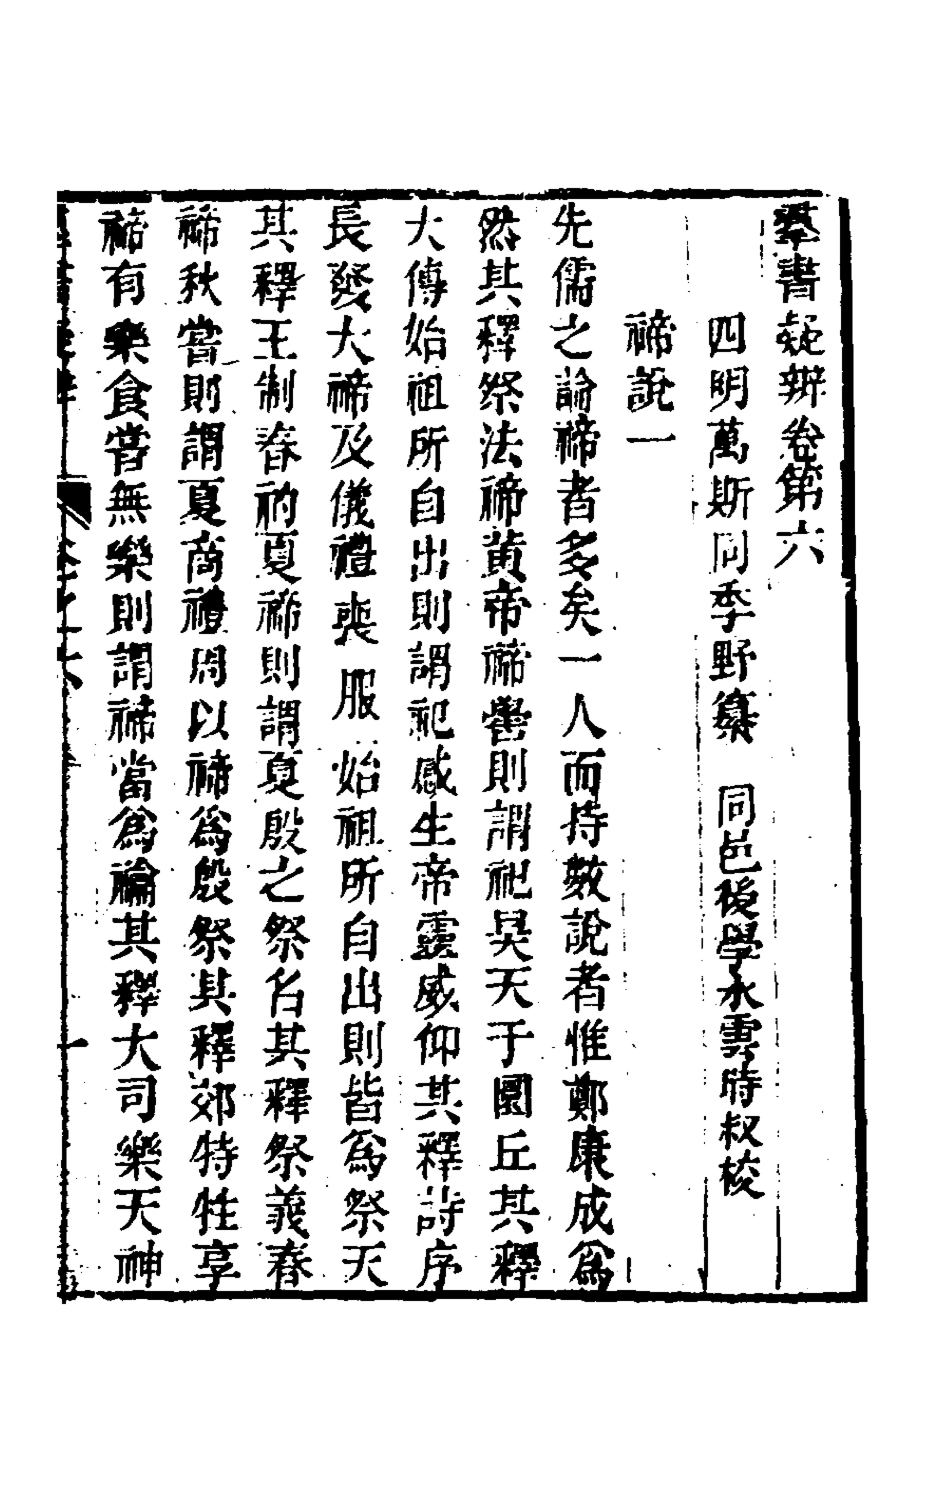 羣書疑辨卷第六
四明萬斯同季野纂　同邑後學水雲時叔校
禘說一
先儒之論禘者多矣一人而持數說者惟鄭康成爲
然其釋祭法禘黃帝禘嚳則謂祀昊天于圜丘其釋
大傳始祖所自出則謂祀感生帝靈威仰其釋詩序
長發大禘及儀禮喪服始祖所自出則皆爲祭天
其釋王制春礿夏禘則謂夏殷之祭名其釋祭義春
禘秋嘗則謂夏商禮周以禘爲殷祭其釋郊特牲享
禘有樂食嘗無樂則謂禘當爲禴其釋大司樂天神
卷之六
一